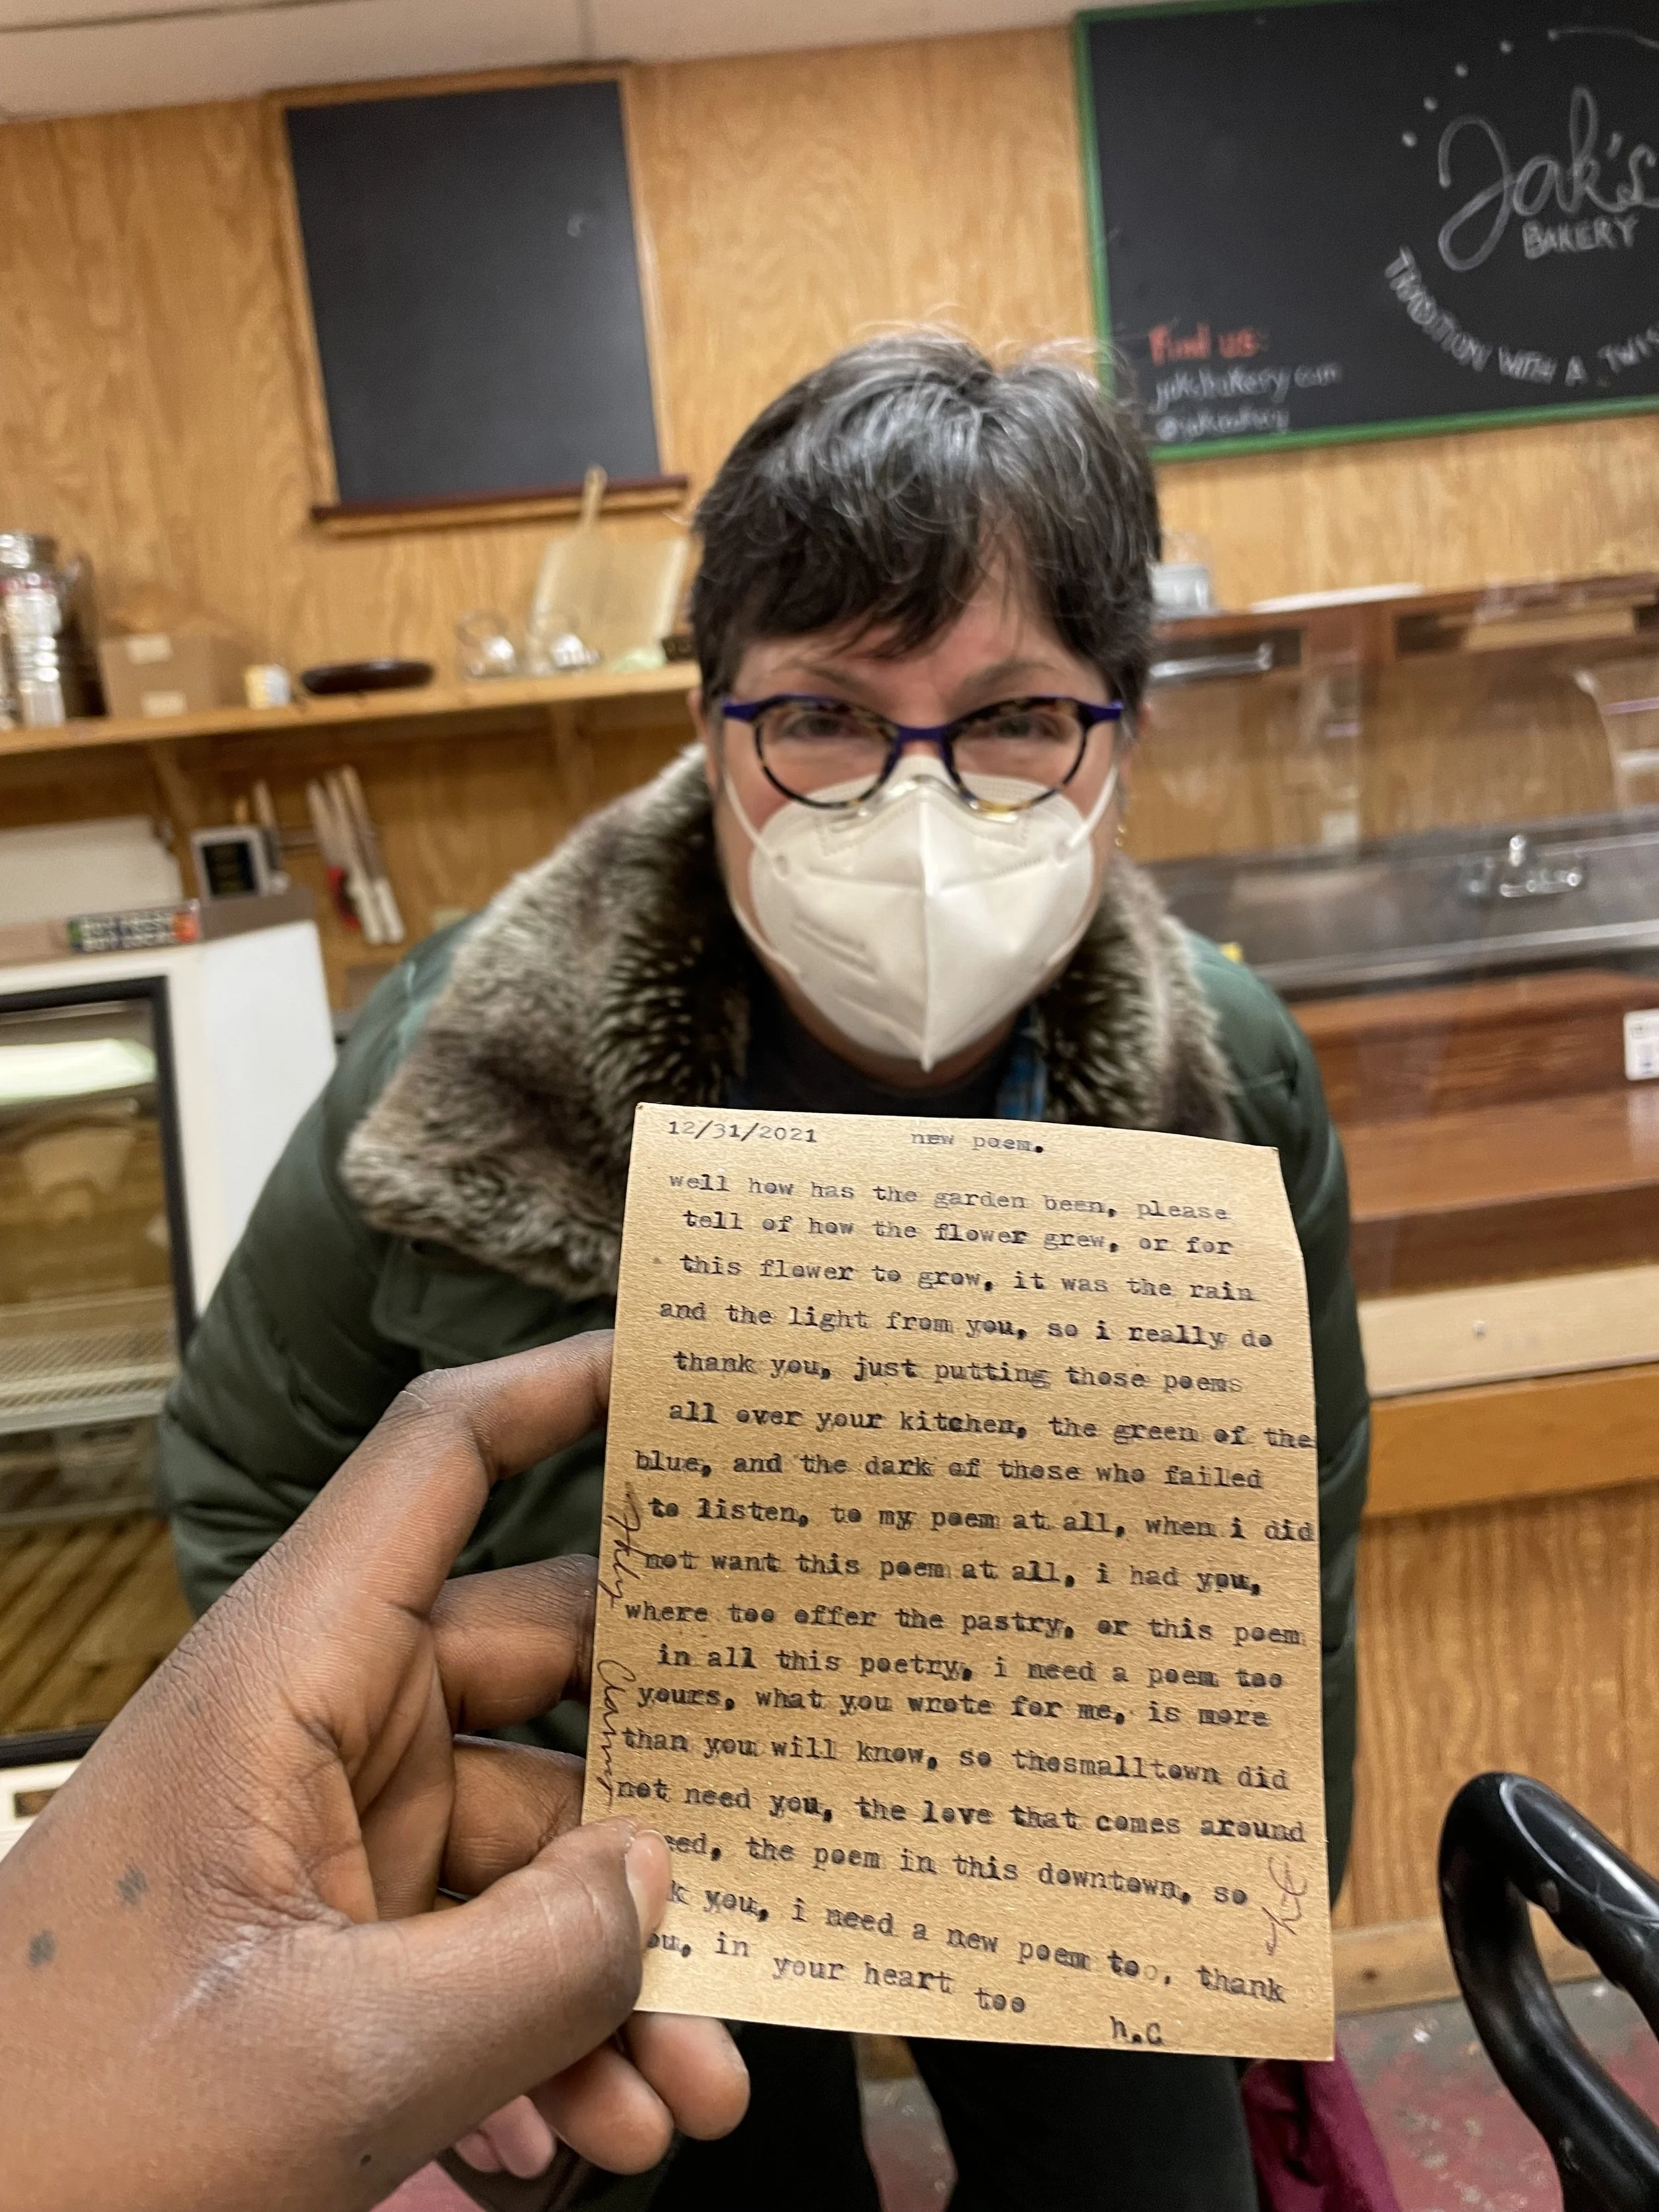 Jak's
BAKERY
TRADITION WITH A
Find us:
12/31/2021 new poem.
well how has the garden been, please
tell of how the flower grew, or for
this flower to grow, it was the rain
and the light from you, so i really do
thank you, just putting those poems
all over your kitchen, the green of the
blue, and the dark of those who failed
to listen, to my poem at all, when i did
not want this poem at all, i had you,
where too offer the pastry, or this poem
in all this poetry, i need a poem too
yours, what you wrote for me, is more
than you will know, so thesmalltown did
not need you, the love that comes around
the poem in this downtown, so
you, i need a new poem too, thank
in your heart too
h.C